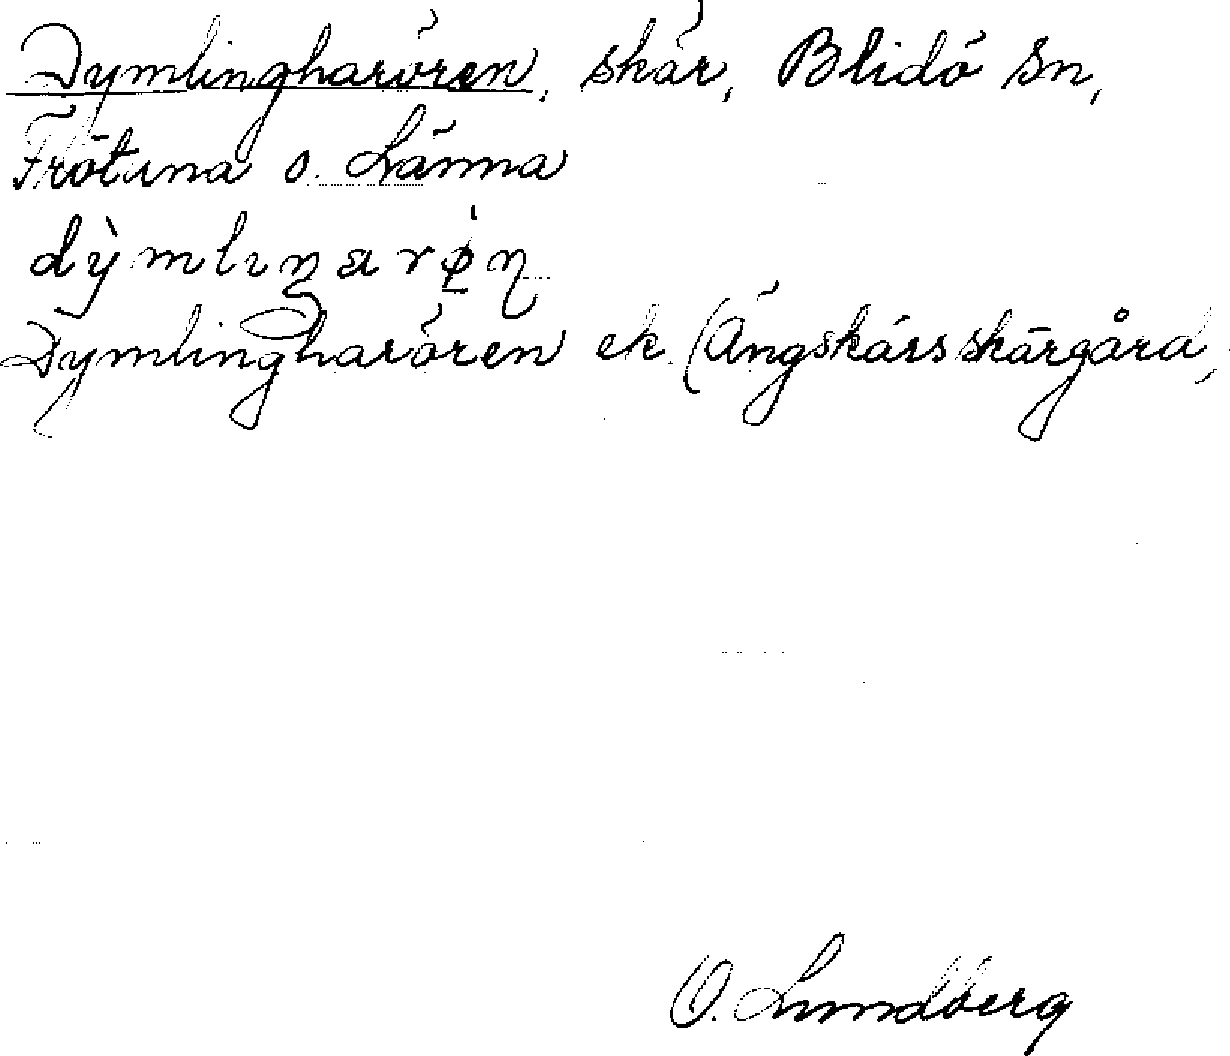 Dymlingharören, skär, Blidö sn,
Frötuna o. Länna
dỳmlıŋarø̣̀n
Dymlingharören ek. (Ängskärsskärgård,
O. Lundberg